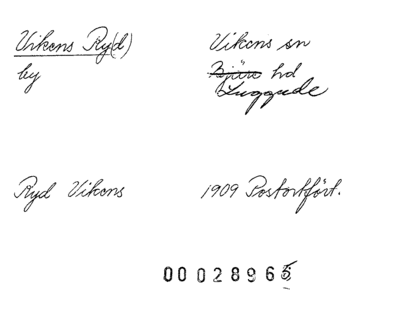 Vikens Ry(d) Vikens sn
by Bjäre hd
Luggude
Ryd Vikens 1909 Postortfört.
00028965